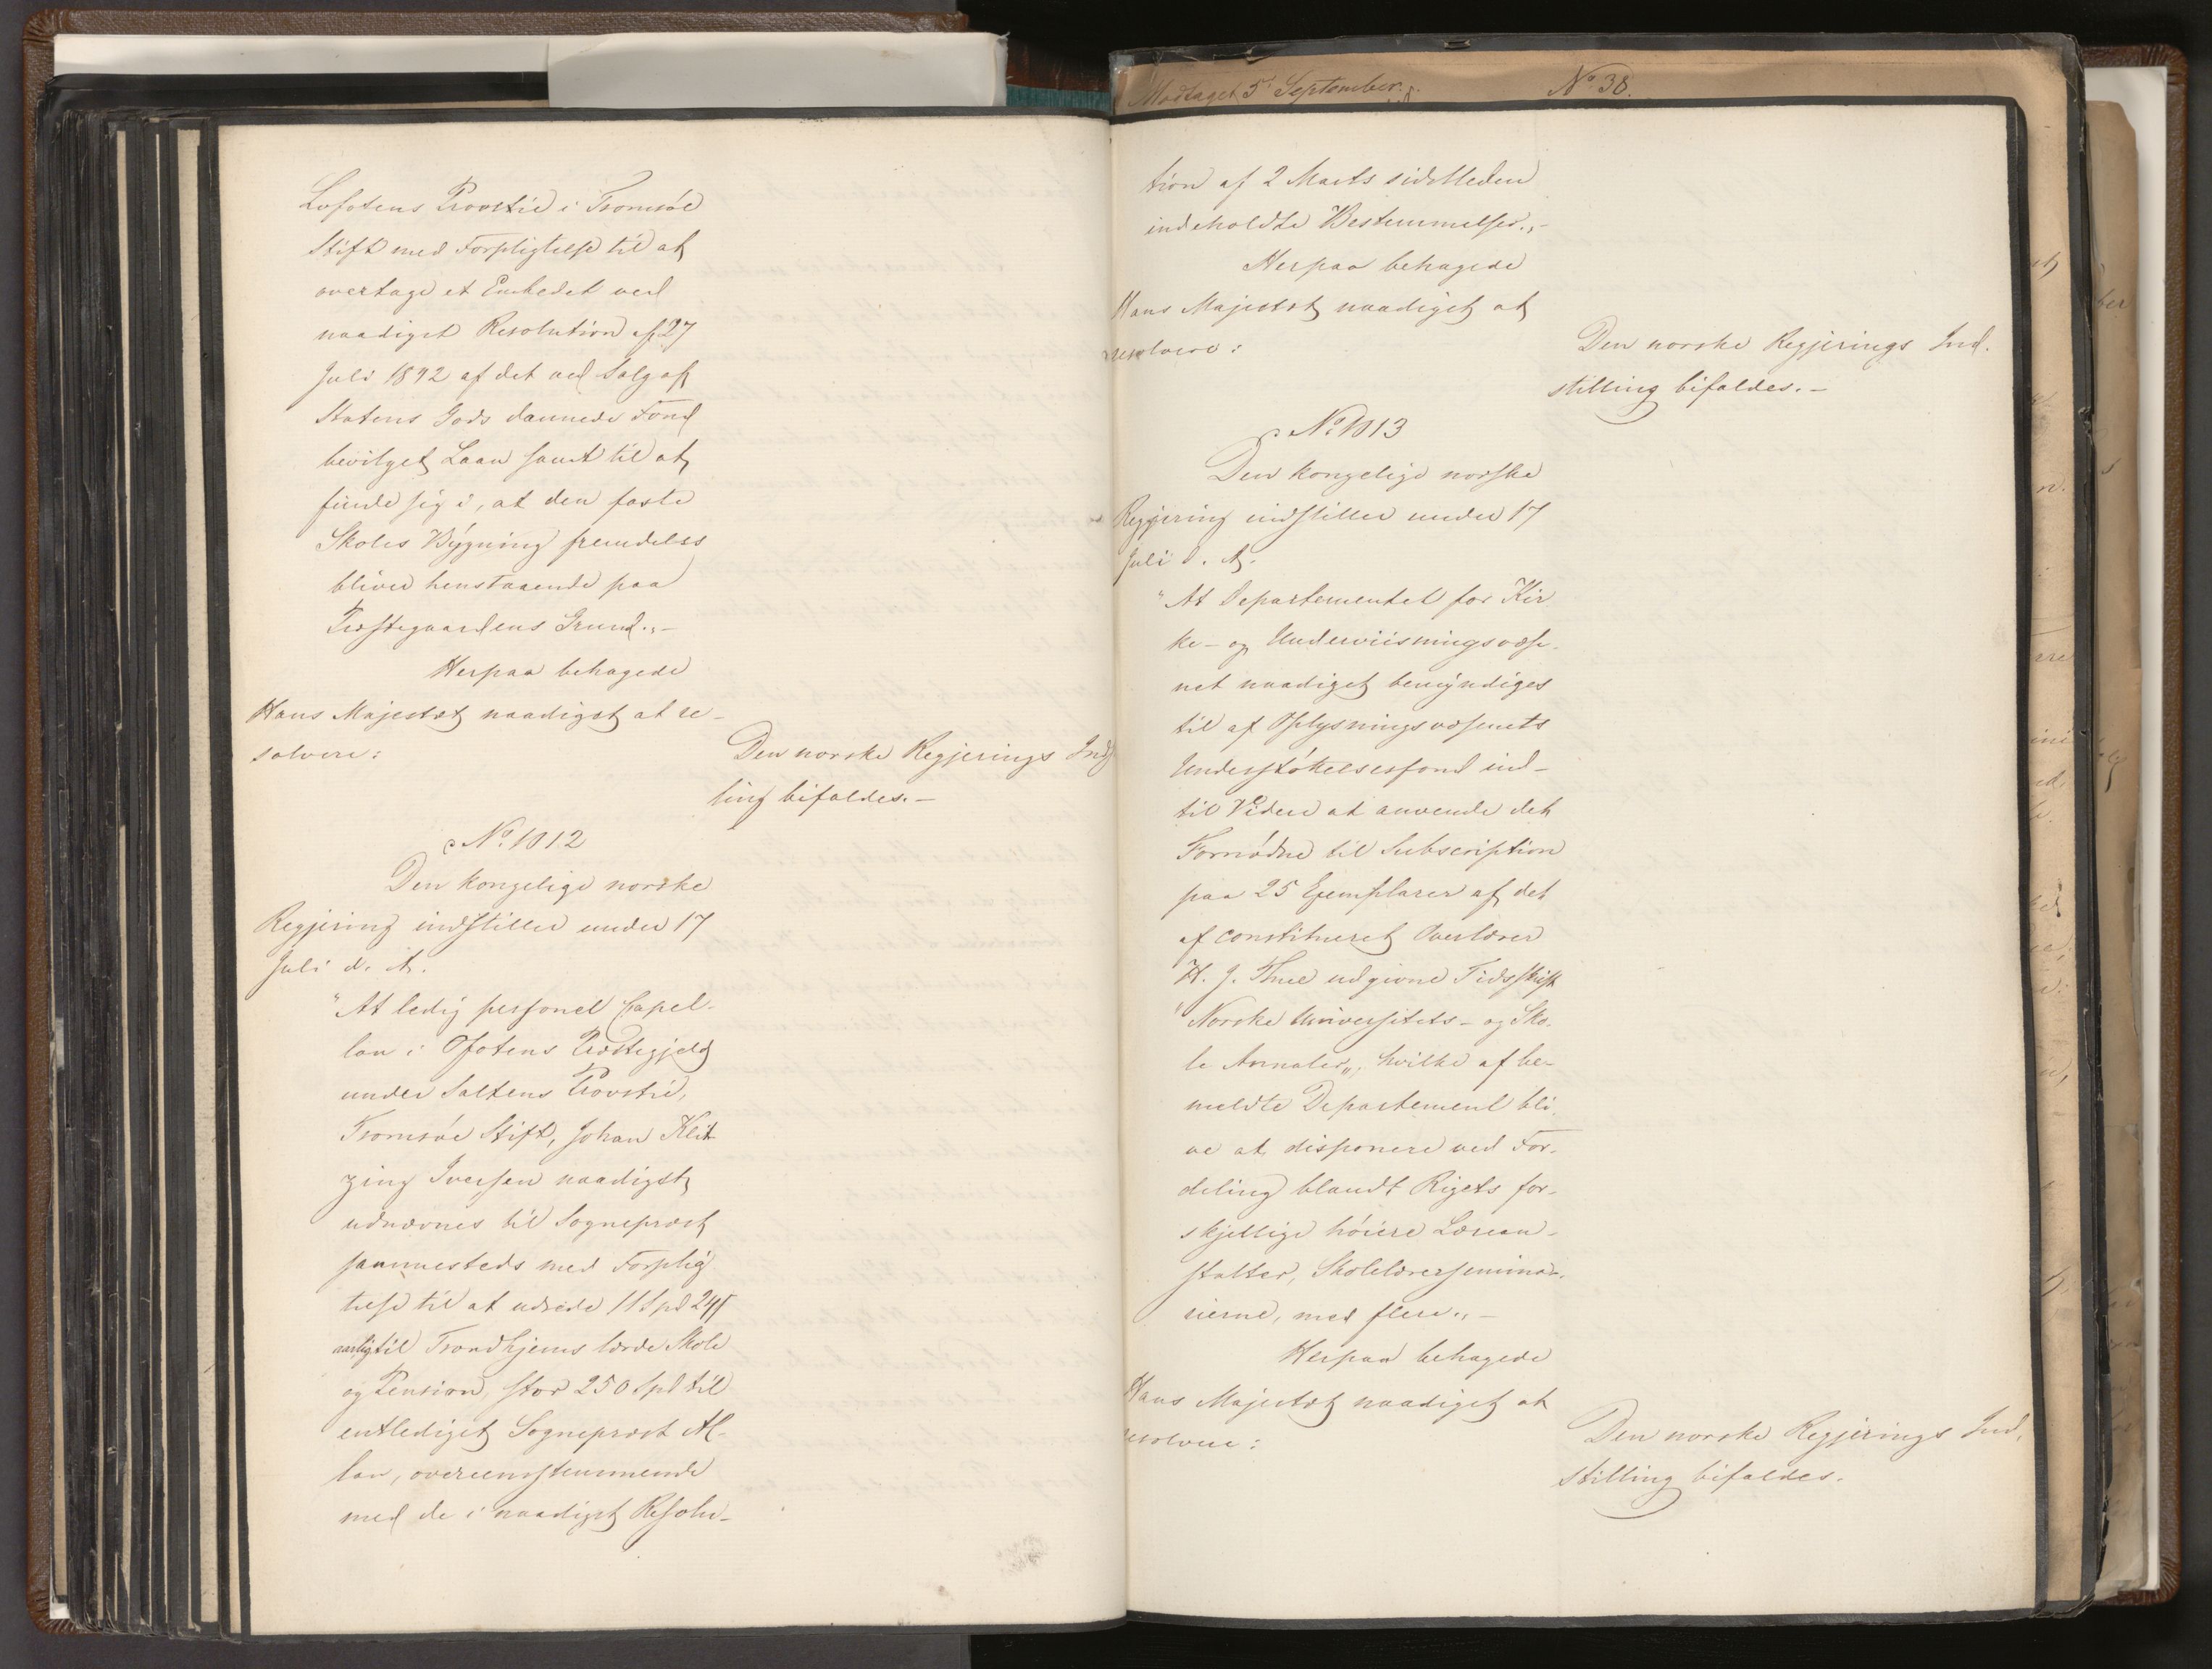 Lofotens Provstie i Tromsöe
Stift med Forpligtelse til at
overtage et Embedet ved
naadigst Resolution af 27
Juli 1842 af det ved Salg af
Statens Gods dannede Fond
bevilget Laan samt til at
finde sig i, at den faste
Skoles Bygning fremdeles
bliver henstaaende paa
Præstegaardens Grund.„-
Herpaa behagede
Hans Majestæt naadigst at re-
solvere:
Den norske Regjerings Ind
ling bifaldes.-
No. 1012
Den kongelige norske
Regjering indstiller under 17
Juli d. A.
"At ledig personel Capel-
lan i Ofotens Præstegjeld
under Saltens Provstie,
Tromsöe Stift, Johan Klit
zing Iversen naadigst
udnævnes til Sognepræst
sammesteds med Forplig
telse til at udrede 11 Spd 24 ß
aarlig til Trondhjems lærde Skole
og Pension, stor 250 Spd til
entlediget Sognepræst Al-
lan, overeensstemmende
med de i naadigst Resolu-
Modtaget 5t September.
No 38.
tion af 2 Marts sidstleden
indeholdte Bestemmelser.„-
Herpaa behagede
Hans Majestæt naadigst at
resolvere:
Den norske Regjerings Ind-
stilling bifaldes.-
No. 1013
Den kongelige norske
Regjering indstiller under 17
Juli d. A.
"At Departementet for Kir
ke- og Underviisningsvæse-
net naadigst bemyndiges
til af Oplysningsvæsenets
Understöttelsesfond ind-
til Videre at anvende det
Fornödne til Subscription
paa 25 Exemplarer af det
af constitueret Overlærer
H. J. Thue udgivne Tidsskrift
"Norske Universitets- og Sko-
le Annaler„, hvilke af be-
meldte Departement bli-
ve at disponere ved For-
deling blandt Rigets for-
skjellige höiere Læreran-
stalter, Skolelærerseminari-
erierne, med flere.„-
Herpaa behagede
Hans Majestæt naadigst at
resolvere:
Den norske Regjerings Ind-
stilling bifaldes.